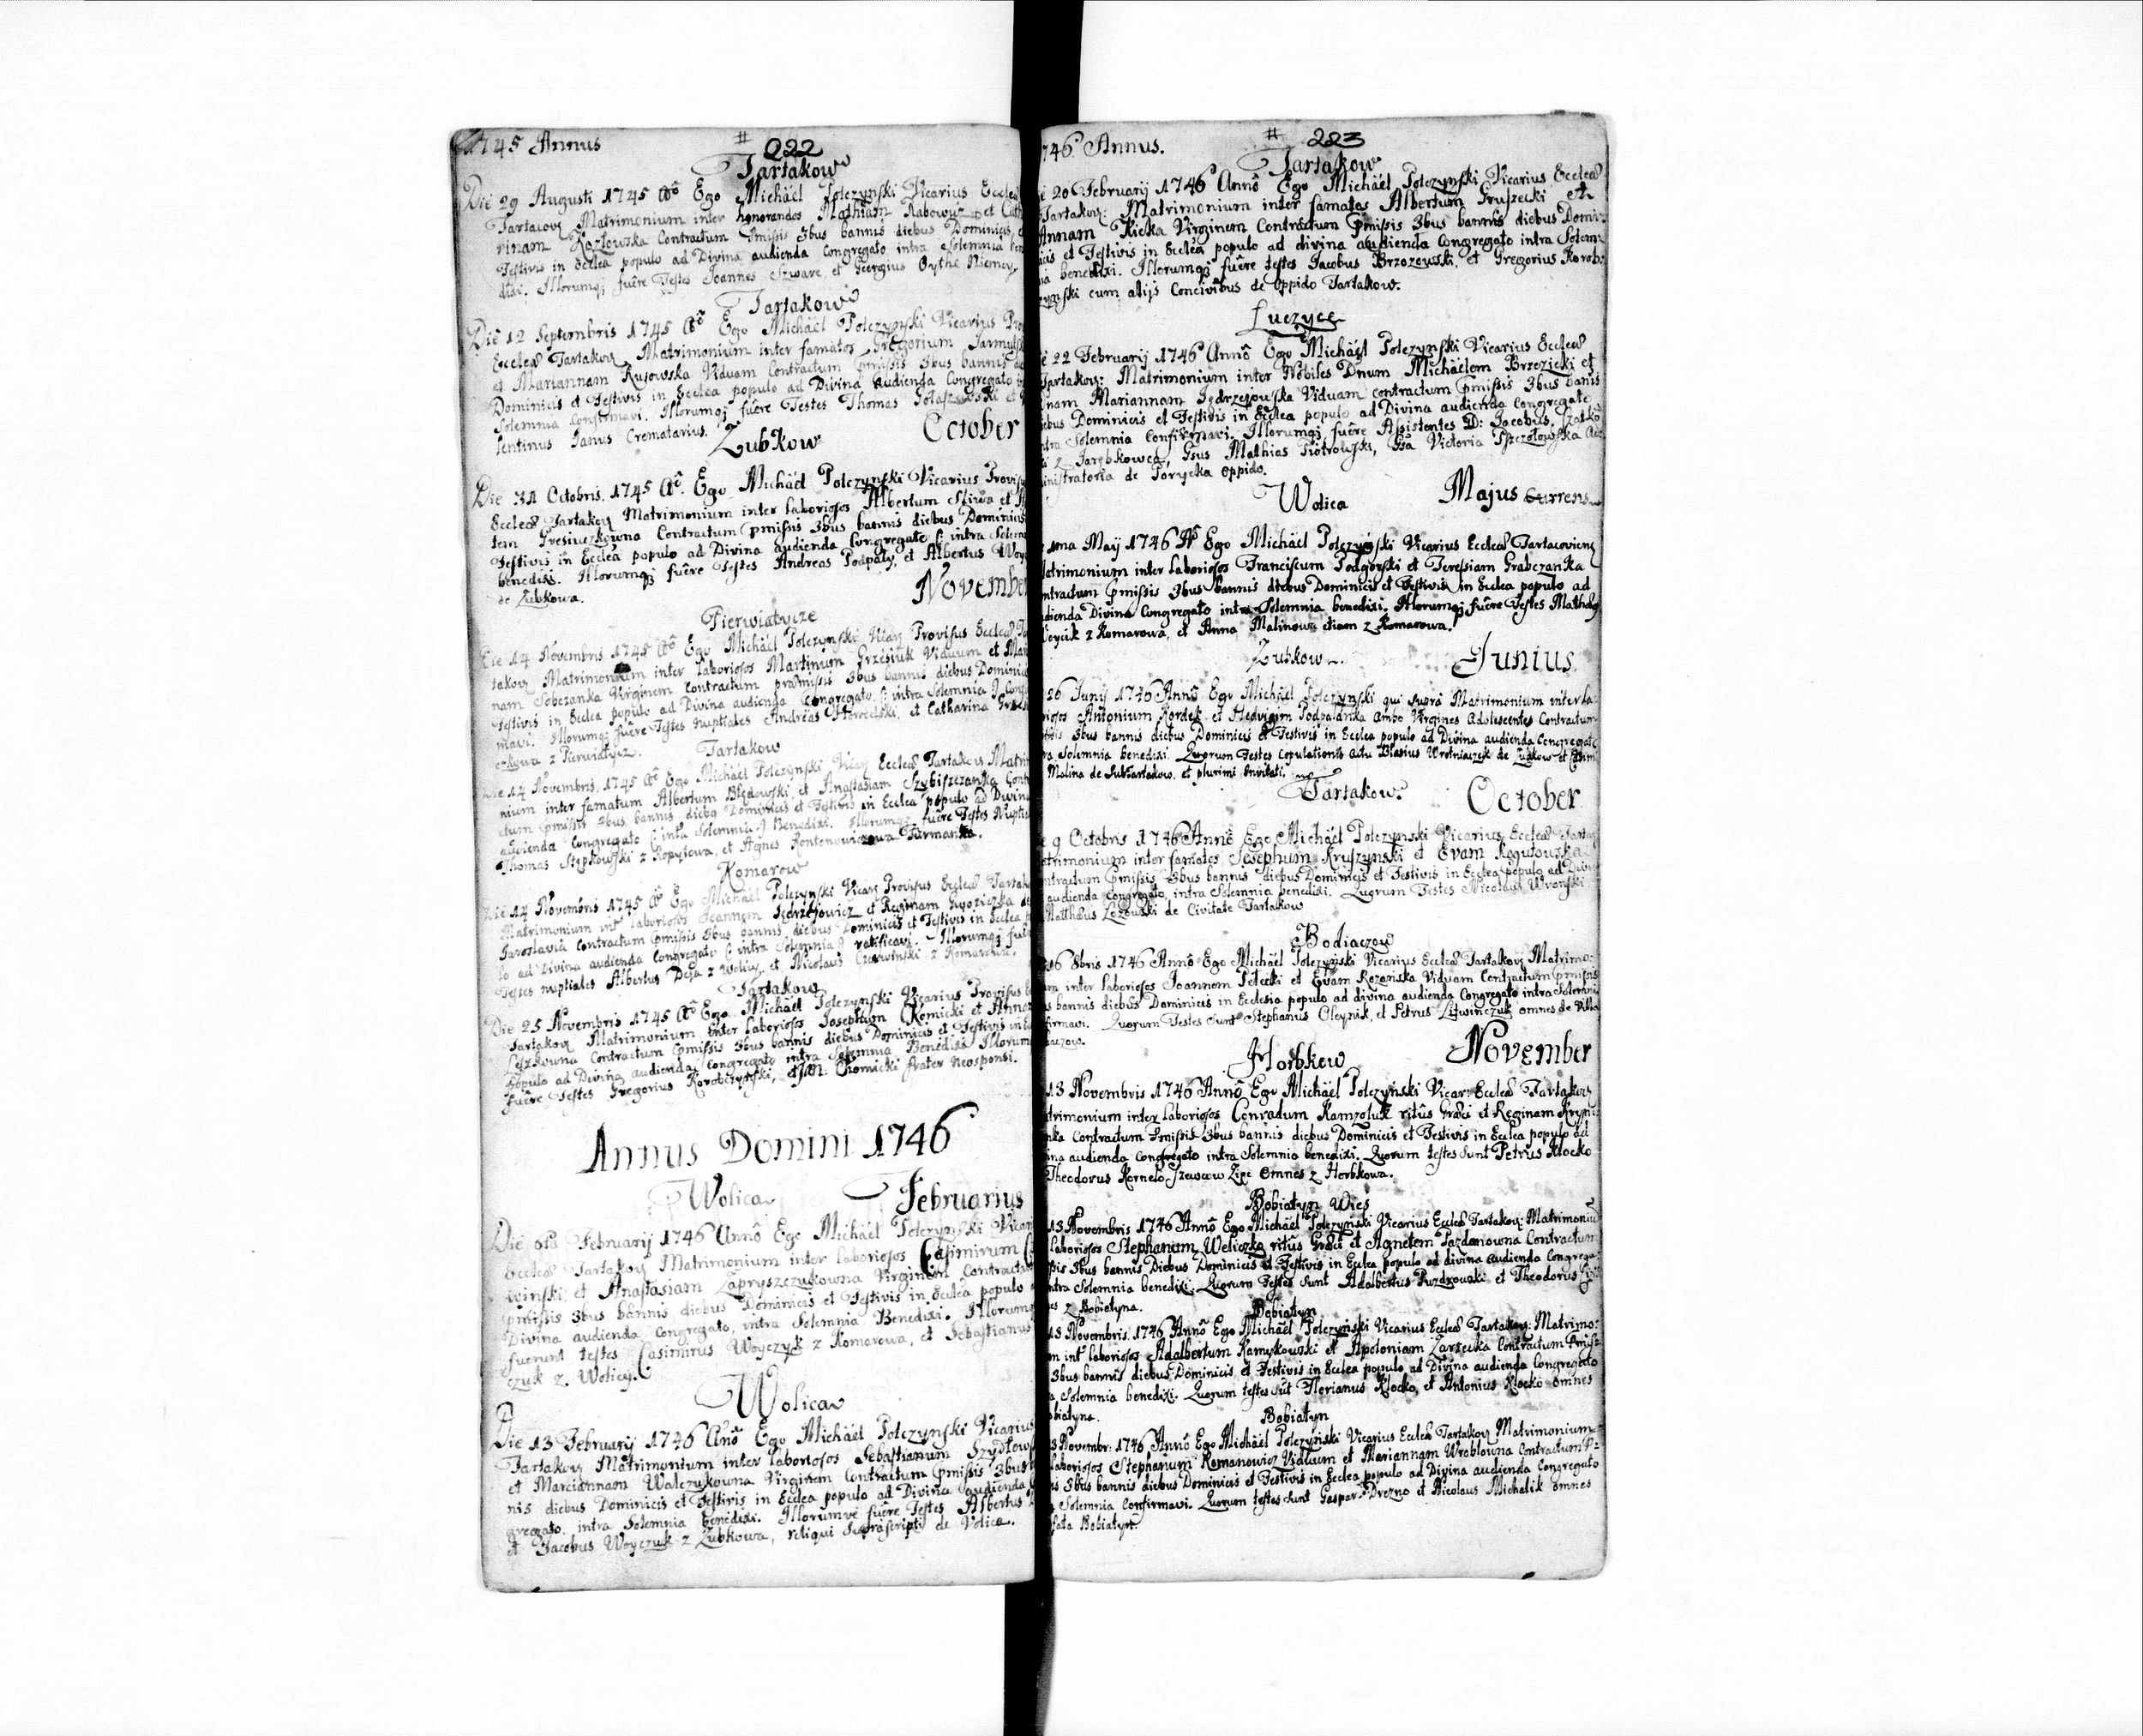 1745 Annus
# 222
Tartakow
Die 29 Augusti 1745 Aō Ego Michäel Polczynski Vicarius Eccles
Tartacov Matrimonium inter honorandos Mathiam Rabowicz et Cath
rinam Kozłowska Contractum pmissis 3bus bannis diebus Dominicis, et
Festivis in Ecclea populo ad Divina audienda Congregato intra Solemnia
dixi. Illorumq; fuêre Testes Joannes Szwarc et Georgius
Tartakow
Die 12 Septembris 1745 Aō Ego Michäel Polczynski Vicarius Pro
Eccleæ Tartakov Matrimonium inter famatos Gregorium
et Mariannam Kujowska Viduam Contractum pmissis 3bus bannis
Dominicis et Festivis in Ecclea populo ad Divina audienda Congregato
Solemnia confirmavi. Illorumq; fuêre Testes Thomas et
lentinus Janus Crematarius.
October
Zubkow
Die 31 Octobris 1745 Aō. Ego Michäel Polczynski Vicarius Provis
Eccleæ Tartakov Matrimonium inter laboriosos Albertum Sliwa et
tem Gresiuczkowna Contractum pmissis 3bus bannis diebus Dominicis
Festivis in Ecclea populo ad Divina audienda Congregato intra Solem
benedixi. Illorumq; fuêre Testes Andreas Podpały, et Albertus Woy
de Zubkowa.
November
Pierwiatycze
Die 14 Novembris 1745 Aō Ego Michäel Polczynski Vicar Provisus Eccleæ
takov Matrimonium inter laboriosos Martinum Grzesiuk Viduum et Mari
nam Sobczanka Virginem Contractum præmissis 3bus bannis diebus Dominicis
Festivis in Ecclea populo ad Divina audienda Congregato (: intra Solemnia :) confir
mavi. Illorumq; fuêre Testes nuptiales Andreas Horodelski, et Catharina
z Pierwiatycz.
Tartakow
Die 14 Novembris 1745 Aō Ego Michäel Polczynski Vicar Eccleæ Tartakov Matri
nium inter famatum Albertum Błędowski, et Anastasiam Szybiszczanka Cont
ctum pmissis 3bus bannis diebus Dominicis et Festivis in Ecclea populo ad Divina
audienda Congregato (: intra Solemnia :) Benedixi. Illorumq; fuêre Testes Nupti
Thomas Stępkowski z Kopytowa, et Agnes
Komarow
Die 14 Novembris 1745 Aō Ego Michäel Polczynski Vicar Provisus Eccleæ Tartak
Matrimonium int laboriosos Joannem Jędrzejowicz et Reginam
Jaroslavia Contractum pmissis 3bus bannis diebus Dominicis et Festivis in Ecclea
lo ad Divina audienda Congregato (: intra Solemnia :) ratificavi. Illorumq; fuê
Testes nuptiales Albertus Deja z Wolicy, et Nicolaus Czerwinski z Komarowa.
Tartakow
Die 25 Novembris 1745 Aō Ego Michäel Polczynski Vicarius Provisus
Tartakov Matrimonium inter laboriosos Josephum Chomicki et Anna
Leszkowna Contractum pmissis 3bus bannis diebus Dominicis et Festivis in
Populo ad Divina audienda Congregato intra Solemnia Benedixi Illorum
fuêre Testes Gregorius Korobczynski, Chomicki frater neosponsi.
Annus Domini 1746
Wolica
Februarius
Die 6ta Februarij 1746 Annô Ego Michäel Polczynski Vicari
Eccleæ Tartakov Matrimonium inter laboriosos Casimirum
winski et Anastasiam Zapryszczukowna Virginem Contractu
pmissis 3bus bannis diebus Dominicis et Festivis in Ecclea populo
Divina audienda Congregato, intra Solemnia Benedixi. Illorumq
fuerunt testes Casimirus Woyczyk z Komarowa, et Sebastianus
czuk z Wolicy.
Wolica
Die 13 Februarij 1746 Anô Ego Michäel Polczynski Vicarius
Tartakov Matrimonium inter laboriosos Sebastianum Szydłow
et Mariannam Walczukowna Virginem Contractum pmissis 3bus
nis diebus Dominicis et Festivis in Ecclea populo ad Divina audienda
gregato intra Solemnia benedixi. Illorumve fuêre Testes Albertus
et Jacobus Woyczuk z Zubkowa, reliqui supräscripti de Wolica.
746 Annus.
# 223
Tartakow
e 20 Februarij 1746 Annô Ego Michäel Polczynski Vicarius Eccleæ
Tartakov: Matrimonium inter famatos Albertum Gruszecki et
Annam Kicka Virginem Contractum pmissis 3bus bannis diebus Domi
cis et Festivis in Ecclea populo ad divina audienda Congregato intra Solem
ia benedixi. Illorumq; fuêre testes Jacobus Brzozowski, et Gregorius Korob
zynski cum alijs Concivibus de oppido Tartakow.
Łuczyce
e 22 Februarij 1746 Annô Ego Michäel Polczynski Vicarius Eccleæ
Tartakov: Matrimonium inter Nobiles Dnum Michäelem Brzezicki et
nam Mariannam Jędrzejowska Viduam contractum pmissis 3bus banis
iebus Dominicis et Festivis in Ecclea populo ad Divina audienda Congregato
ntra Solemnia Confirmavi. Illorumq; fuêre Assistentes D: Jacobus
z Jarębkowca, Gsus Mathias Piotrowski, Gsa Victoria Pszczołowska
inistratoria de Porycka oppido.
Wolica
Majus currens
1ma Maij 1746 Aō Ego Michäel Polczynski Vicarius Eccleæ Tartacovien
atrimonium inter laboriosos Franciscum Podgorski et Teressiam Grabczanka
ntractum pmissis 3bus bannis diebus Dominicis et Festivis in Ecclea populo ad
dienda Divina Congregato intra Solemnia benedixi. Illorumq; fuêre Testes Mathias
oycik z Komarowa, et Anna Malinowa etiam z Komarowa.
Zubkow
Junius
26 Junij 1746 Annô Ego Michäel Polczynski qui suprà Matrimonium inter la
riosos Antonium Kordek et Hedvigem Podpalanka ambo Virgines Adolescentes Contractum
3bus bannis diebus Dominicis et Festivis in Ecclea populo ad Divina audienda Congregato
ra Solemnia benedixi. Quorum Testes Copulationis actu Blasius Wrotniaczek de Zubkow et
Malina de Tartakow, et plurimi invitati.
Tartakow
October
e 9 Octobris 1746 Annô Ego Michäel Polczynski Vicarius Eccleæ Tarta
trimonium inter famatos Josephum Kruszynski et Evam Kogutowska
ntractum pmissis 3bus bannis diebus Dominicis et Festivis in Ecclea populo ad Divi
audienda Congregato, intra Solemnia benedixi. Quorum Testes Nicolaus Wronski
Matthäus Łozowski de Civitate Tartakow
Bodiaczow
16 8bris 1746 Annô Ego Michäel Polczynski Vicarius Eccleæ Tartakov Matrimo:
um inter laboriosos Joannem Pełecki et Evam Rozanska Viduam Contractum pmissis
s bannis diebus Dominicis in Ecclesia populo ad divina audienda Congregato intra Solemnia
firmavi. Quorum Testes sunt Stephanus Oleynik, et Petrus Litwinczuk omnes de Villa
iaczow.
November
Horbkow
13 Novembris 1746 Annô Ego Michäel Polczynski Vicar Eccleæ Tartakov
trimonium inter laboriosos Conradum Kamzoluk ritûs Græci et Reginam
nka Contractum pmissis 3bus bannis diebus Dominicis et Festivis in Ecclea populo ad
ina audienda Congregato intra Solemnia benedixi. Quorum testes sunt Petrus Klocko
Theodorus omnes z Horbkowa.
Bobiatyn Wies
13 Novembris 1746 Annô Ego Michäel Polczynski Vicarius Eccleæ Tartakov: Matrimoniu
laboriosos Stephanum Weliczka ritûs Græci et Agnetem Pazdaniowna Contractum
sis 3bus bannis Diebus Dominicis et Festivis in Ecclea populo ad divina audienda Congrega
ntra Solemnia benedixi. Quorum Testes sunt Adalbertus Puzdrowski et Theodorus
es z Bobiatyna.
Bobiatyn
13 Novembris 1746 Annô Ego Michäel Polczynski Vicarius Eccleæ Tartakov: Matrimo:
m int laboriosos Adalbertum Kamykowski et Apoloniam Zarzecka Contractum pmiss
3bus bannis diebus Dominicis et Festivis in Ecclea populo ad Divina audienda Congregato
a Solemnia benedixi. Quorum testes sūt Florianus Klocko, et Antonius Klocko omnes
obiatyna.
Bobiatyn
3 Novembr: 1746 Annô Ego Michäel Polczynski Vicarius Eccleæ Tartakov Matrimonium
laboriosos Stephanum Romanowicz Viduum et Mariannam Wroblowna Contractum p
is 3bus bannis diebus Dominicis et Festivis in Ecclea populo ad Divina audienda Congregato
Solemnia Confirmavi. Quorum testes sunt Gaspar Drezno et Nicolaus Michalik omnes
fata Bobiatyn.